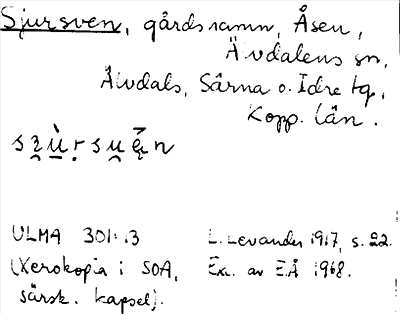 Sjursven, gårdsnamn, Åsen,
Älvdalens sn,
Älvdals, Särna o. Idre tg,
Kopp. län.
ULMA 301:13
(Xerokopia i SOA,
särsk. kapsel).
L. Levander 1917, s. 22.
Exc. av EÅ 1968.